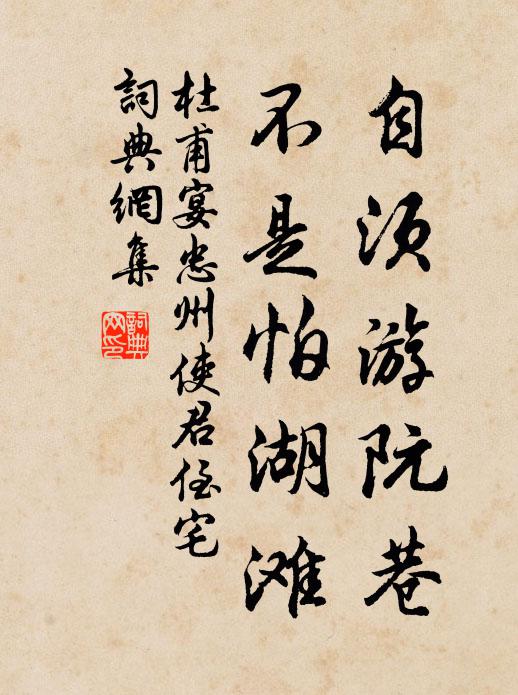 自须游阮巷
不是怕湖滩
杜甫宴忠州使君侄宅
詞典網集
詞典网印